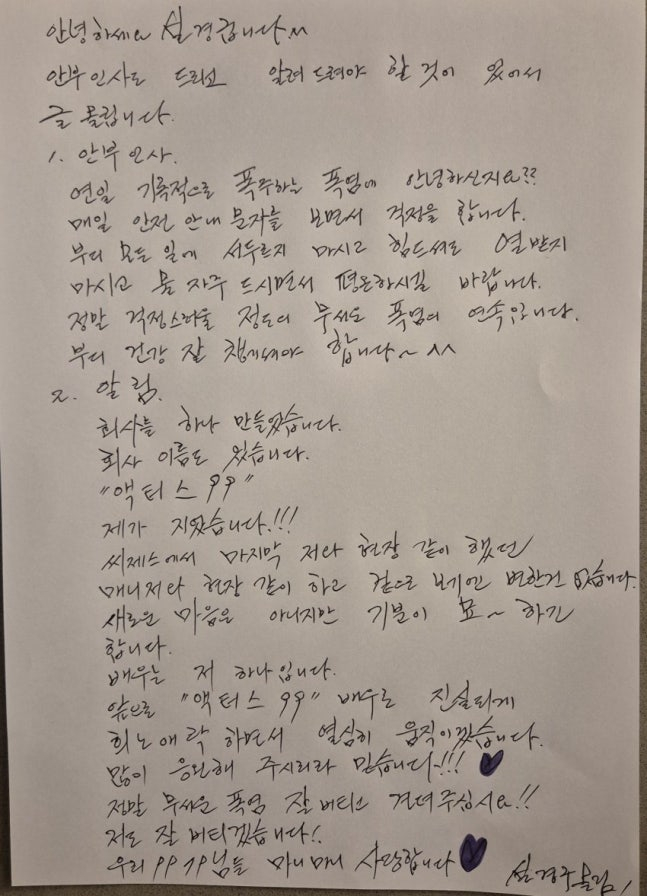 안녕하세요 설경굽니다^^
안부인사도 드리고 알려드려야 할 것이 있어서
글 올립니다.
1. 안부 인사.
연일 기록적으로 폭주하는 폭염에 안녕하신지요??
매일 안전 안내 문자를 보면서 걱정을 합니다.
부디 모든 일에 서두르지 마시고 힘드셔도 열받지
마시고 물 자주 드시면서 평온하시길 바랍니다.
정말 걱정스러울 정도의 무서운 폭염의 연속입니다.
부디 건강 잘 챙기셔야 합니다~ ^^
2. 알림.
회사를 하나 만들었습니다.
회사 이름도 있습니다.
"액터스99"
제가 지었습니다.!!!
씨제스에서 마지막 저와 현장 같이 했던
매니저와 현장 같이 하고 겉으로 보기엔 변한건 없습니다.
새로운 마음은 아니지만 기분이 묘~하긴
합니다.
배우는 저 하나입니다.
앞으로 "액터스99" 배우로 진실되게
희노애락 하면서 열심히 움직이겠습니다.
많이 응원해 주시리라 믿습니다~!!!
정말 무서운 폭염 잘 버티고 견뎌주십시요!!
저도 잘 버티겠습니다!.
우리 99가님들 마니마니 사랑합니다
설경구 올림.